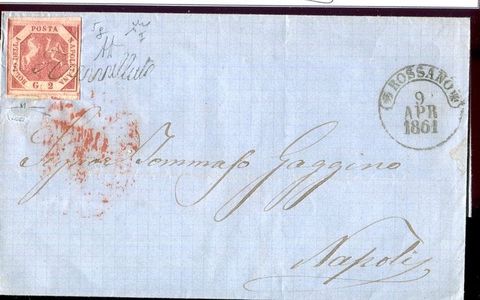 POSTA
NAPOLETANA
BOLLO DELLA
G. 2
Annullato
ROSSANO
9
APR
1861
Signor Tommaso Gaggino
Napoli